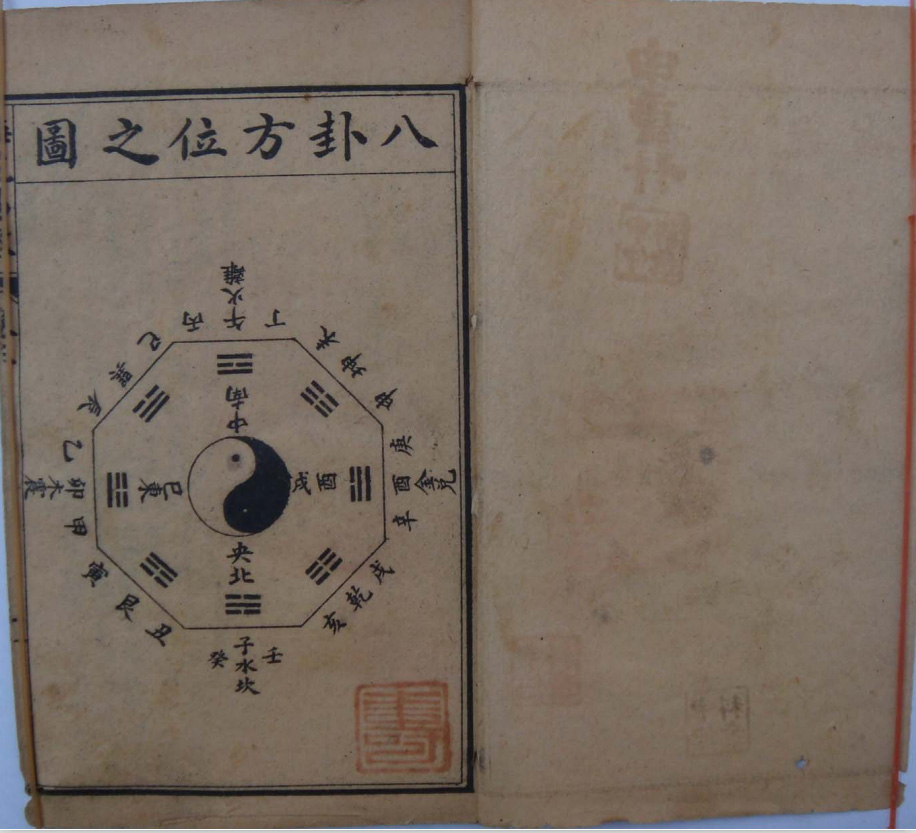 八卦方位之圖
丁午丙
火
離
未坤申
庚酉辛
金
兌
戌乾亥
壬子癸
水
坎
丑艮寅
甲卯乙
木
震
辰巽巳
南中
東已
酉戊
央北